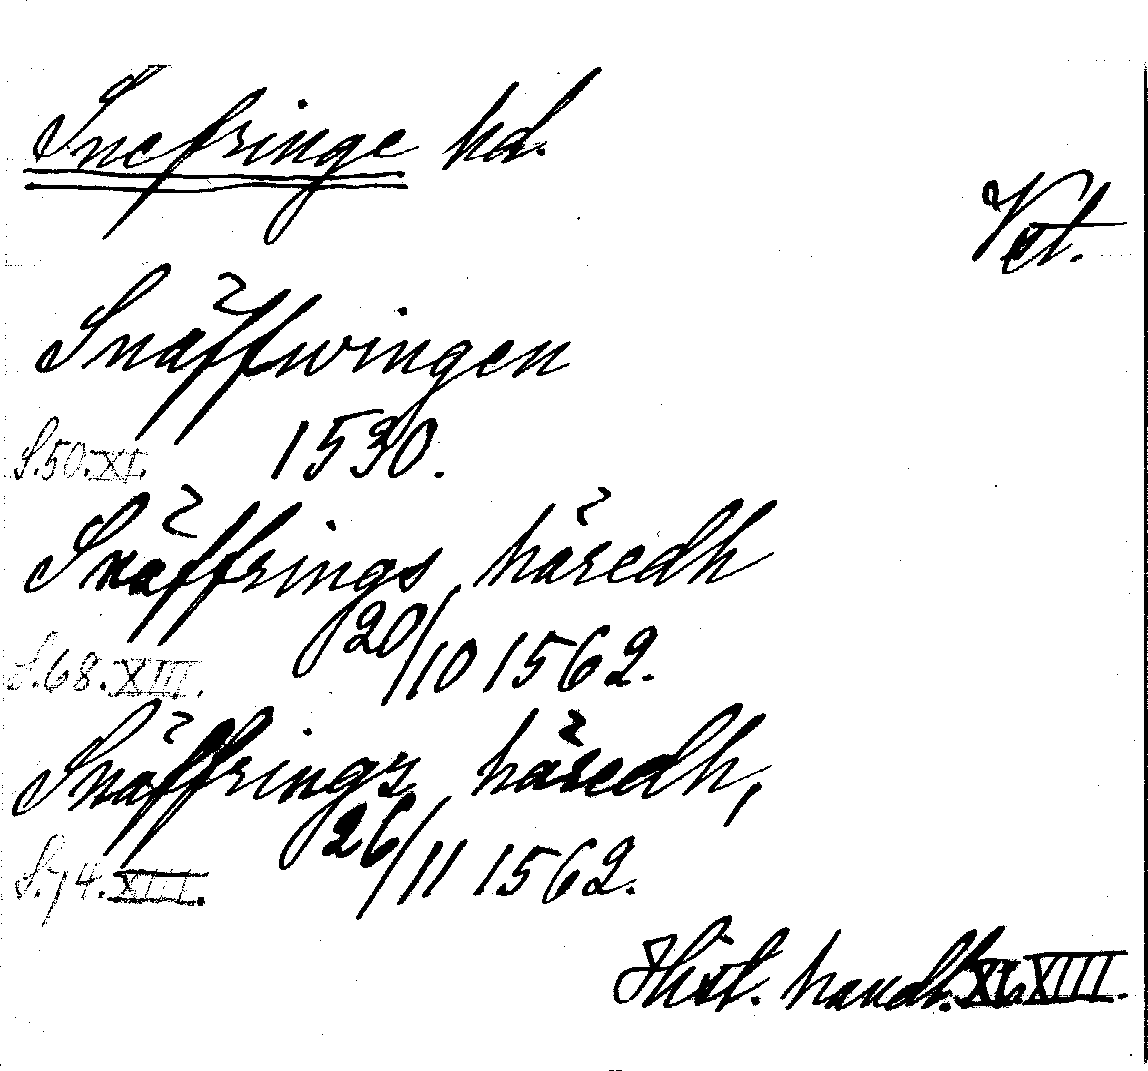 Snefringe hd.
Vst.
Snäffwingen
S. 50. XI. 1530.
Snäffrings häredh
S. 68. XIII. 20/10 1562.
Snäffringz häredh,
S. 74. XIII. 26/11 1562.
Hist. handl. XI, XIII.